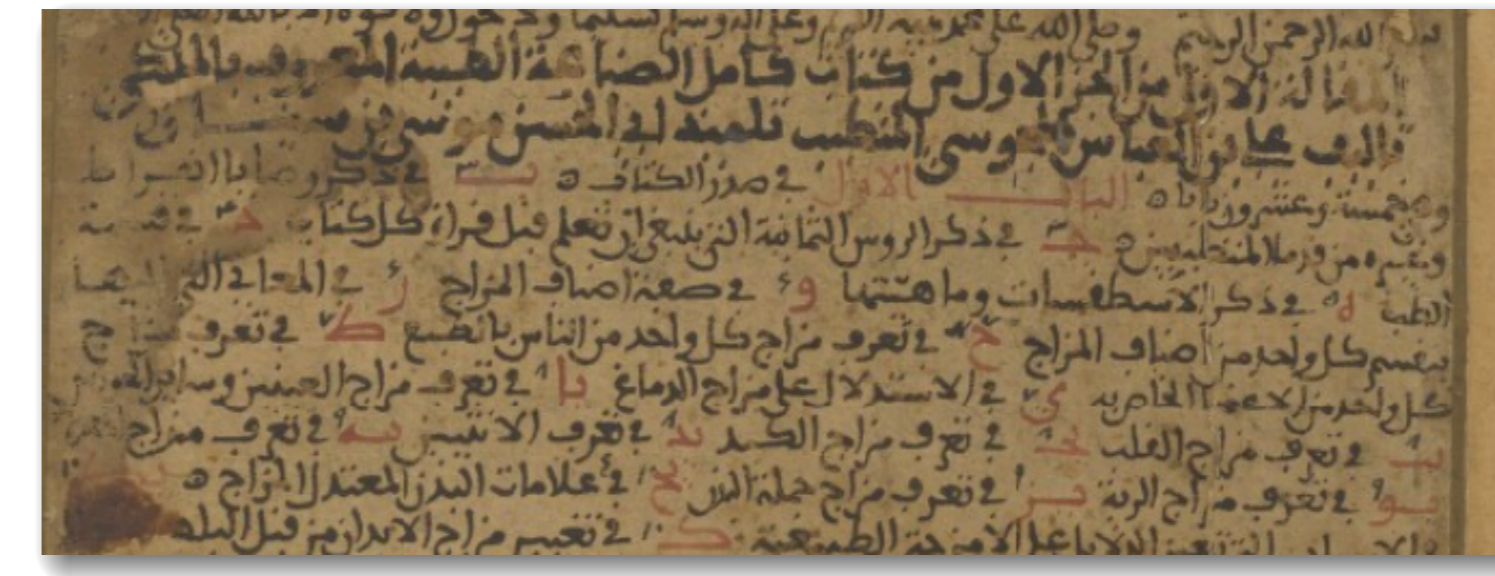 بسم الله الرحمن الرحيم وصلى الله على محمد نبيه وعلى اله وسلم تسليما ولا حول ولا قوة الا بالله
المقالة الاولى من الجز الاول من كتاب كامل الصناعة الطبية المعروف بالملكي
تاليف علي بن العباس المجوسي المتطبب تلميذ ابي الحسن موسى بن سيار وهي
وهي خمسة وعشرون بابا ه الباب الاول في صدر الكتاب ه ب في ذكر وصايا ابقراط
وغيره من قدما المتطببين ه ج في ذكر الروس الثمانية التي ينبغي ان تعلم قبل قراة كل كتاب د في قسمة
الطب ه في ذكر الاسطقسات وما هيتها و في صفة اصناف المزاج ز في المعاني التي اليها
ينقسم كل واحد من اصناف المزاج ح في تعرف مزاج كل واحد من الناس بالطبع ط في تعرف مزاج
كل واحد من الاعضا الخاص به ي في الاستدلال على مزاج الدماغ يا في تعرف مزاج العينين وساير الحواس
يب في تعرف مزاج القلب يج في تعرف مزاج الكبد يد في تعرف الانثيين يه في تعرف مزاج
يو في تعرف مزاج الرية يز في تعرف مزاج جملة البدن يح في علامات البدن المعتدل المزاج ه
الامزجة الطبيعية ك في تغيير مزاج الابدان من قبل البلد